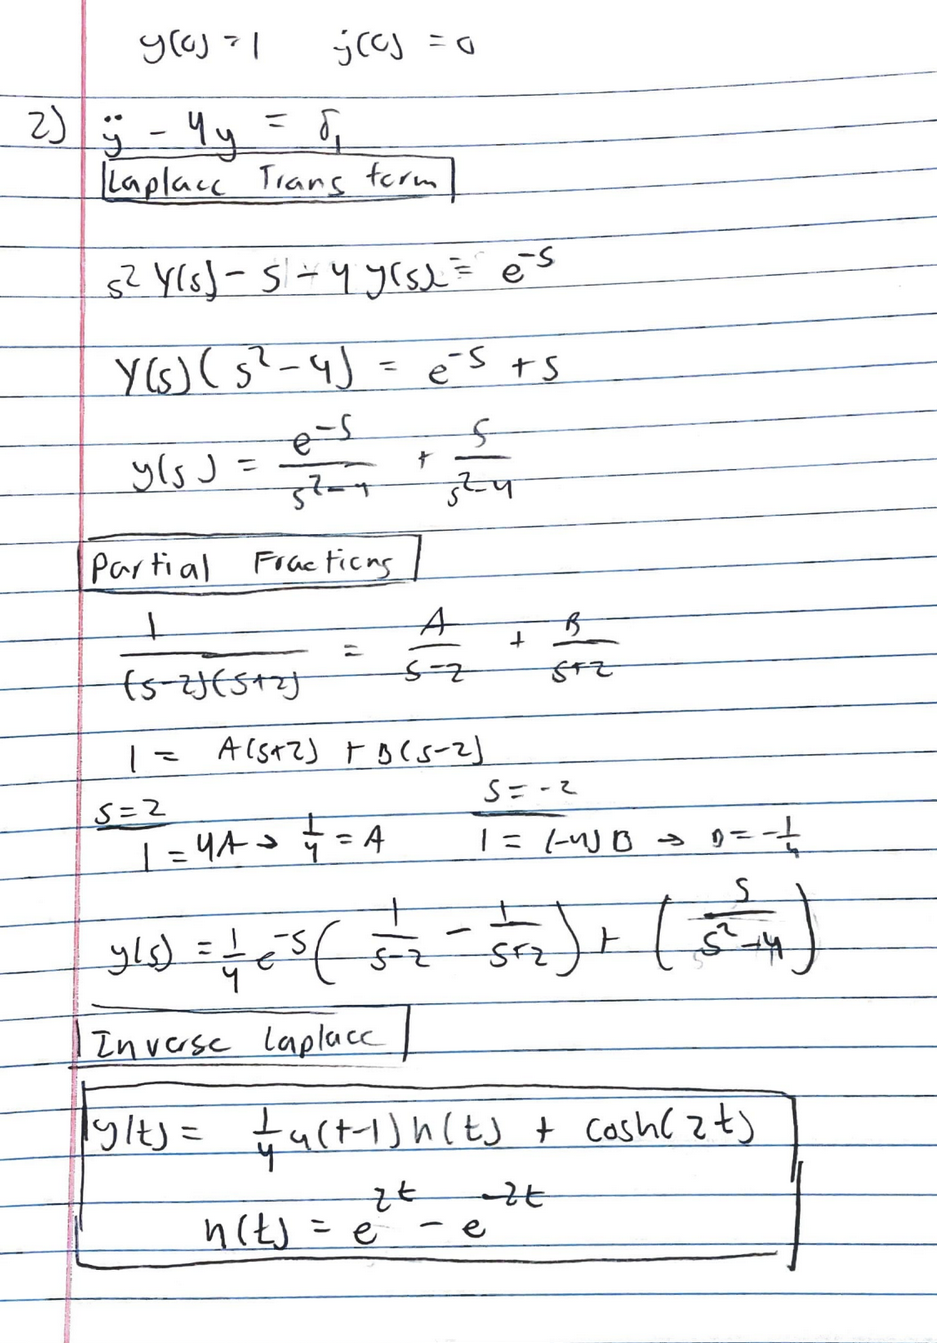 y(0) = 1 ẏ(0) = 0
2) ÿ - 4y = δ₁
Laplace Transform
s² Y(s) - s - 4 y(s) = e^-s
Y(s)(s² - 4) = e^-s + s
y(s) = e^-s/(s²-4) + s/(s²-4)
Partial Fractions
1/((s-2)(s+2)) = A/(s-2) + B/(s+2)
1 = A(s+2) + B(s-2)
s=2 s=-2
1 = 4A → 1/4 = A 1 = (-4)B → B = -1/4
y(s) = 1/4 e^-s (1/(s-2) - 1/(s+2)) + (s/(s²-4))
Inverse Laplace
y(t) = 1/4 u(t-1) h(t) + cosh(2t)
h(t) = e^2t - e^-2t